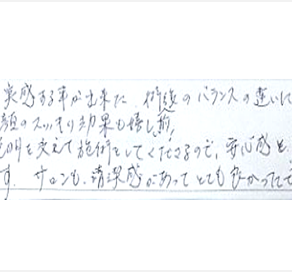 実感する事が出来た 術後のバランスの違いに
顔のスッキリ効果も嬉し
を交えて施術をしてくださるので、安心感と
す。サロンも、清潔感があってとても良かったで